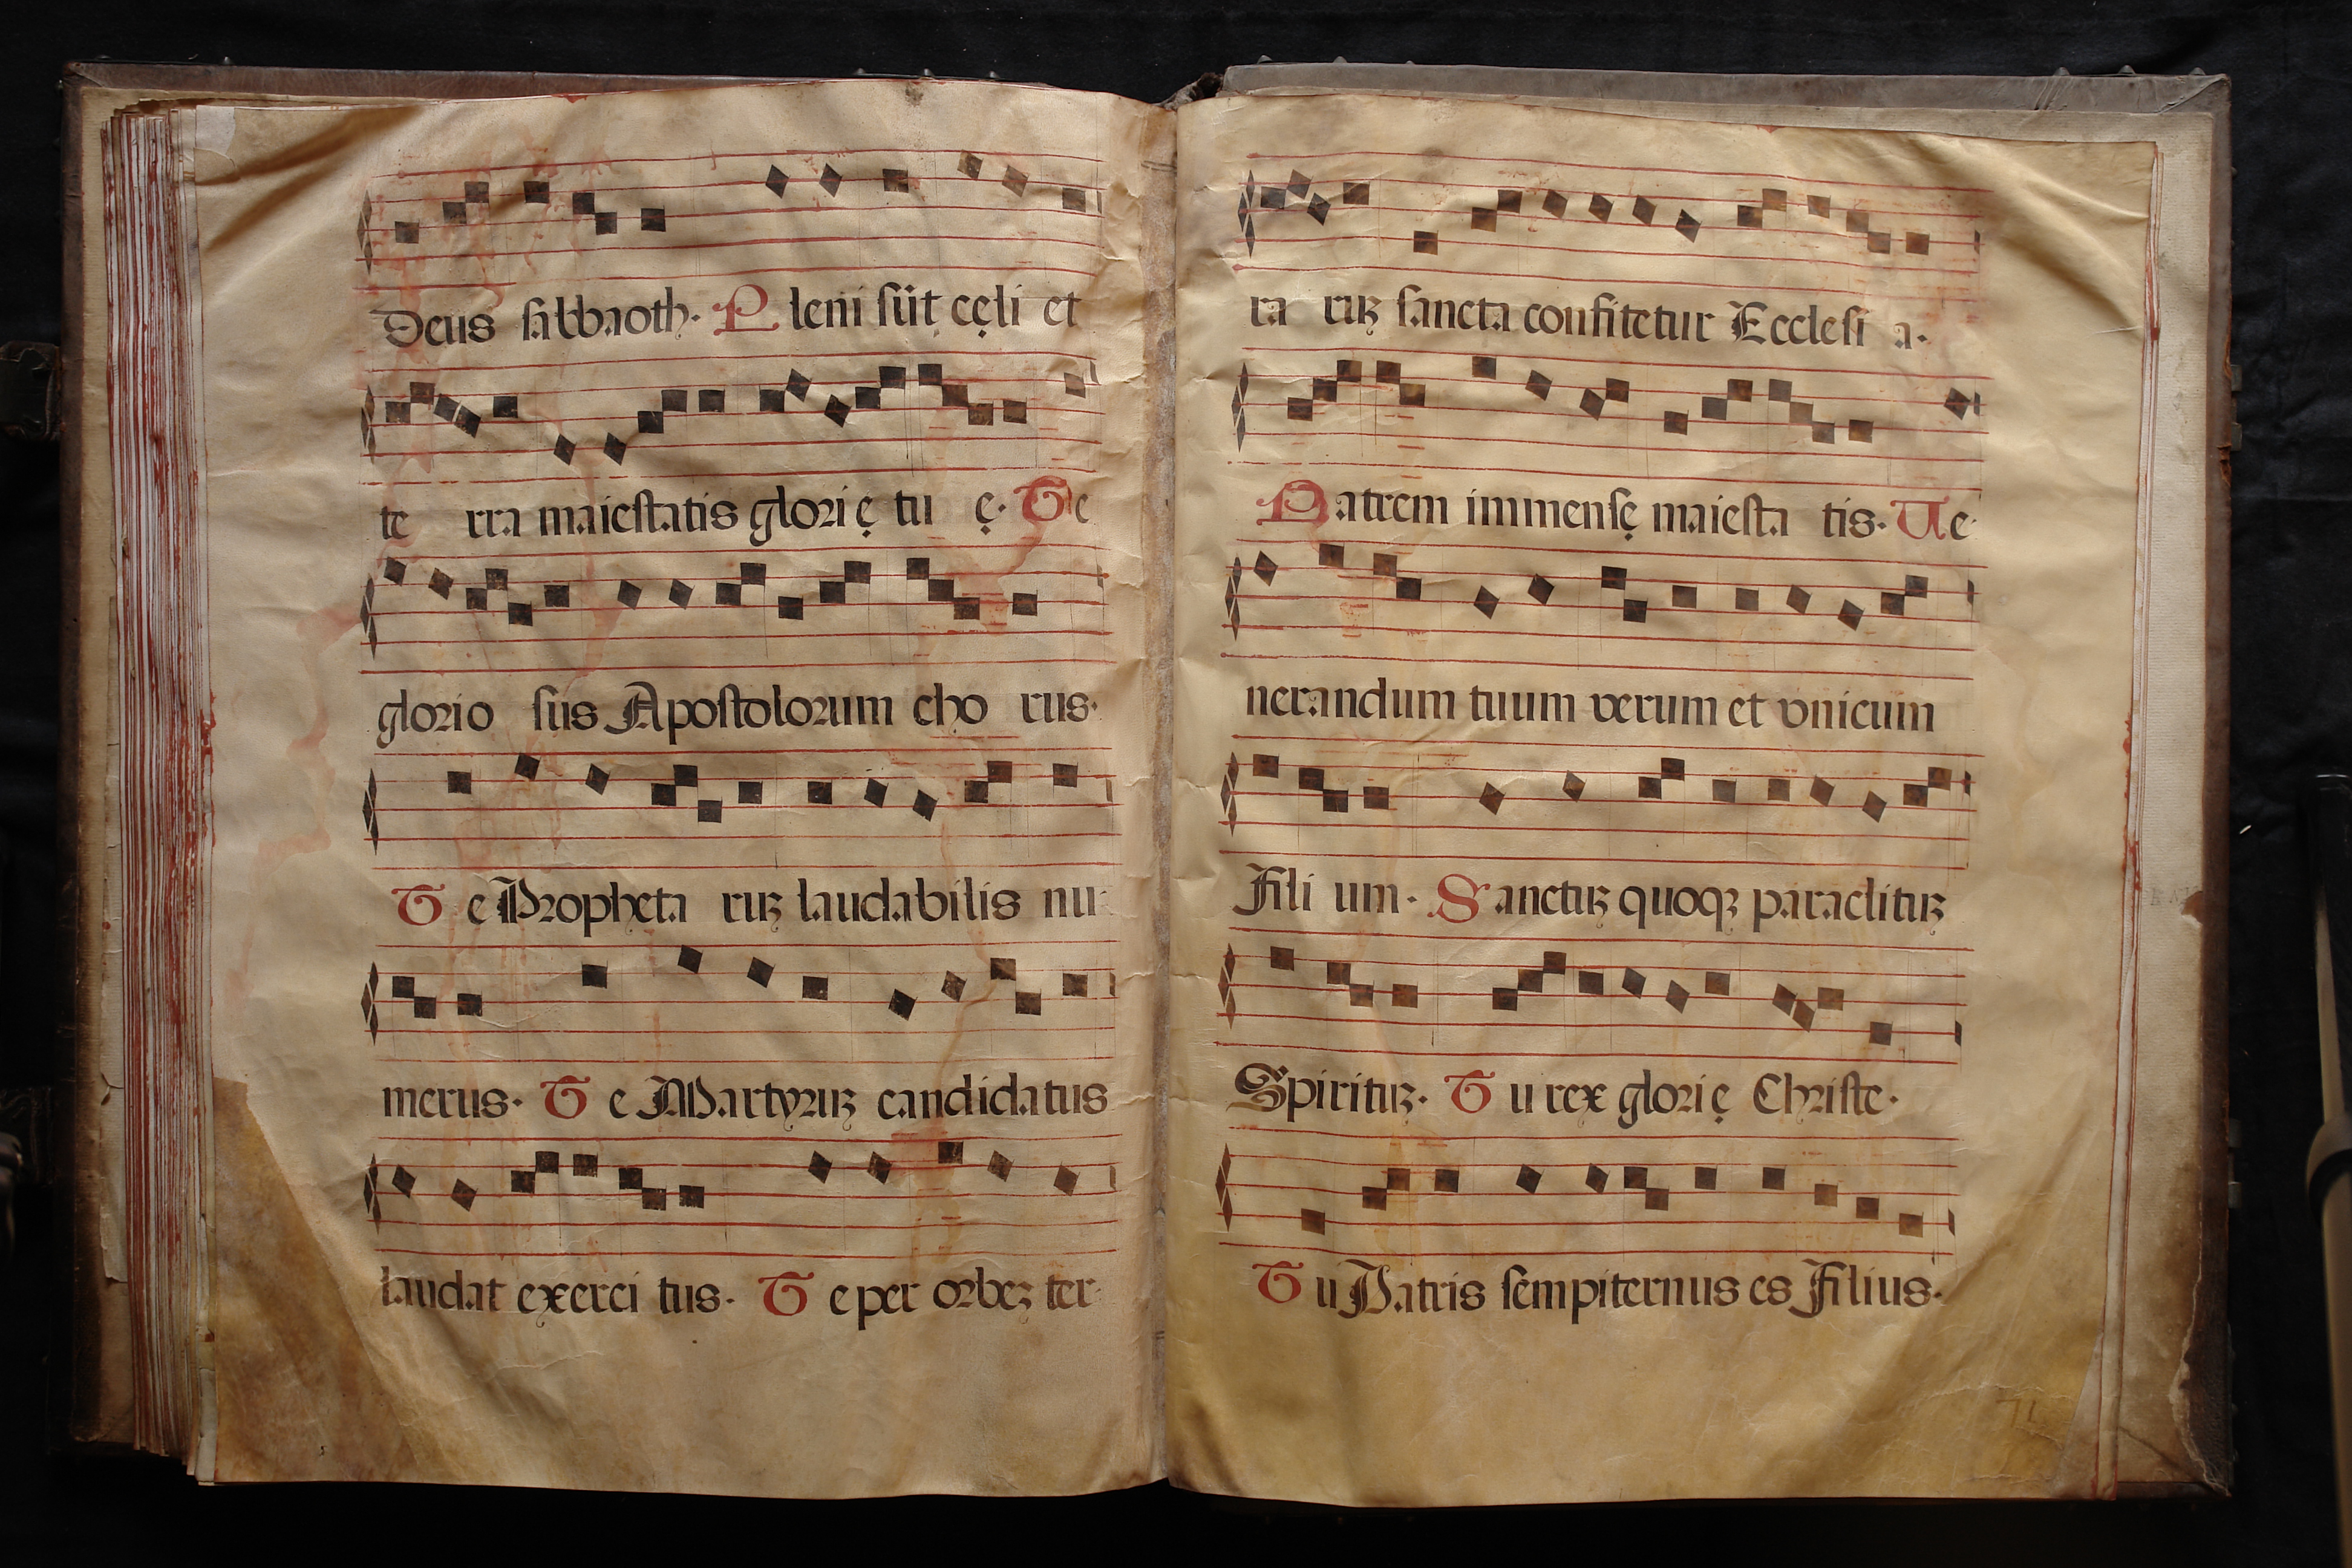 Deus sabbaoth. Pleni sũt cęli et
te rra maiestatis glorię tu ę. Te
glorio sus Apostolorum cho rus.
Te Propheta ruꝫ laudabilis nu-
merus. Te Martyruꝫ candidatus
laudat exerci tus. Te per orbeꝫ ter-
ra ruꝫ sancta confitetur Ecclesi a.
Patrem immensę maiesta tis. Ve-
nerandum tuum verum et vnicum
Fili um. Sanctuꝫ quoqꝫ paraclituꝫ
Spirituꝫ. Tu rex glorię Christe.
Tu Patris sempiternus es Filius.
71